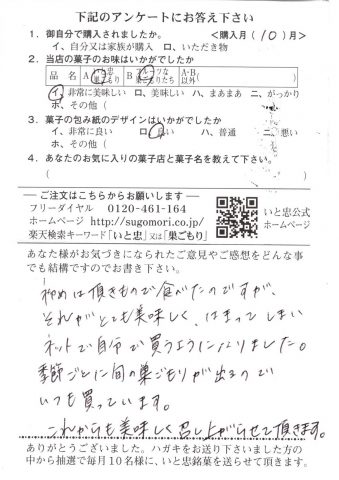 下記のアンケートにお答え下さい
1. 御自分で購入されましたか。 <購入月(10)月>
イ、自分又は家族が購入 ロ、いただき物
2. 当店の菓子のお味はいかがでしたか
品名 A いと忠 巣ごもり B フルーツな こまりたち A・B以外( )
イ、非常に美味しい ロ、美味しい ハ、まあまあ ニ、がっかり
ホ、その他( )
3. 菓子の包み紙のデザインはいかがでしたか
イ、非常に良い ロ、良い ハ、普通 ニ、悪い
ホ、その他( )
4. あなたのお気に入りの菓子店と菓子名を教えて下さい。
( )
ご注文はこちらからお願いします
フリーダイヤル 0120-461-164
ホームページ http://sugomori.co.jp/
楽天検索キーワード「いと忠」又は「巣ごもり」
いと忠公式
ホームページ
あなた様がお気づきになられたご意見やご感想をどんな事
でも結構ですのでお書き下さい。
初めは頂きもので食べたのですが、
それがとても美味しく、はまってしまい
ネットで自分で買うようになりました。
季節ごとに旬の巣ごもりが出るので
いつも買っています。
これからも美味しく召し上がらせて頂きます。
ありがとうございました。ハガキをお送り下さいました方の
中から抽選で毎月10名様に、いと忠銘菓を送らせて頂きます。